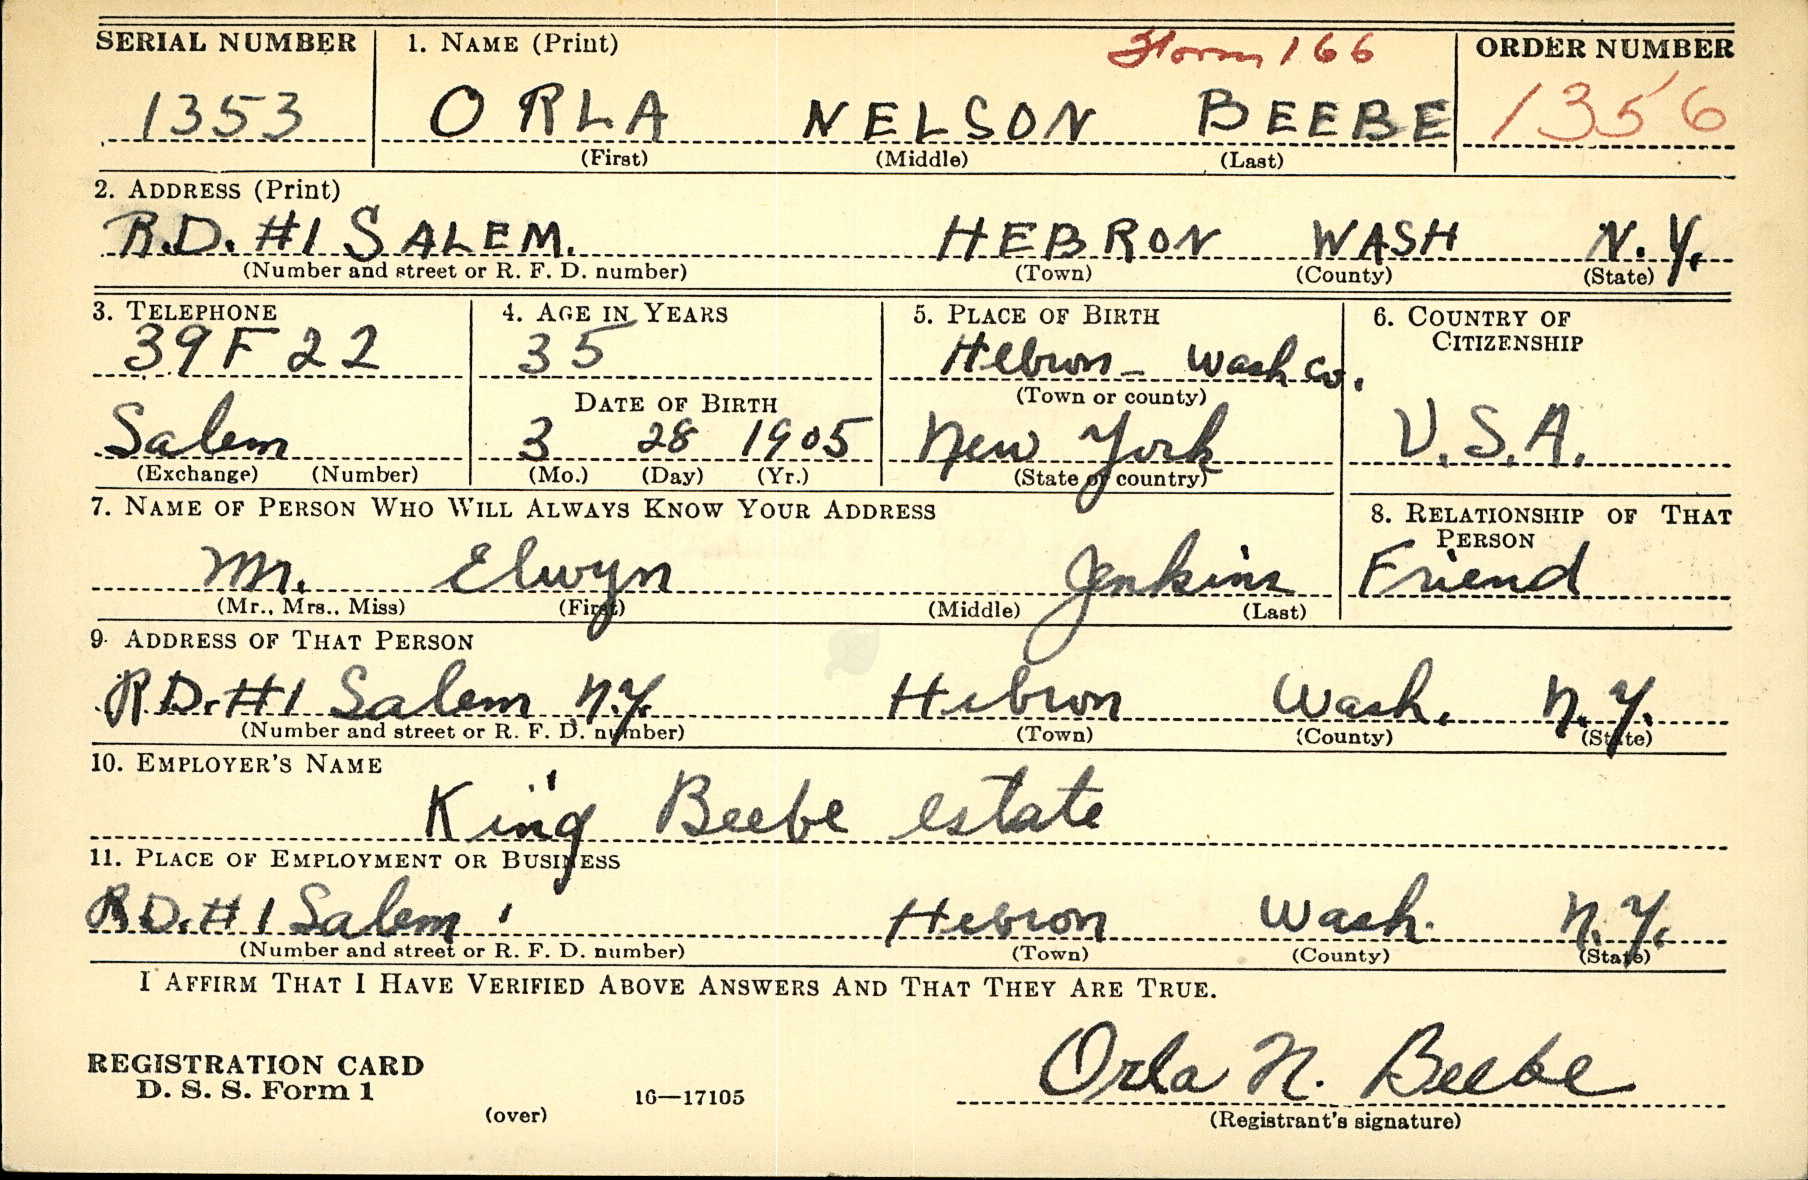 SERIAL NUMBER 1. NAME (Print) Form 166 ORDER NUMBER
1353 ORLA NELSON BEEBE 1356
(First) (Middle) (Last)
2. ADDRESS (Print)
R.D. #1 SALEM. HEBRON WASH N.Y.
(Number and street or R. F. D. number) (Town) (County) (State)
3. TELEPHONE 4. AGE IN YEARS 5. PLACE OF BIRTH 6. COUNTRY OF
CITIZENSHIP
39F22 35 Hebron - Wash Co.
DATE OF BIRTH (Town or county)
Salem 3 28 1905 New York U.S.A.
(Exchange) (Number) (Mo.) (Day) (Yr.) (State or country)
7. NAME OF PERSON WHO WILL ALWAYS KNOW YOUR ADDRESS 8. RELATIONSHIP OF THAT
PERSON
Mr. Elwyn Jenkins Friend
(Mr., Mrs., Miss) (First) (Middle) (Last)
9. ADDRESS OF THAT PERSON
R.D. #1 Salem N.Y. Hebron Wash. N.Y.
(Number and street or R. F. D. number) (Town) (County) (State)
10. EMPLOYER'S NAME
King Beebe estate
11. PLACE OF EMPLOYMENT OR BUSINESS
R.D. #1 Salem Hebron Wash. N.Y.
(Number and street or R. F. D. number) (Town) (County) (State)
I AFFIRM THAT I HAVE VERIFIED ABOVE ANSWERS AND THAT THEY ARE TRUE.
Orla N. Beebe
REGISTRATION CARD
D. S. S. Form 1
(over) 16—17105 (Registrant's signature)